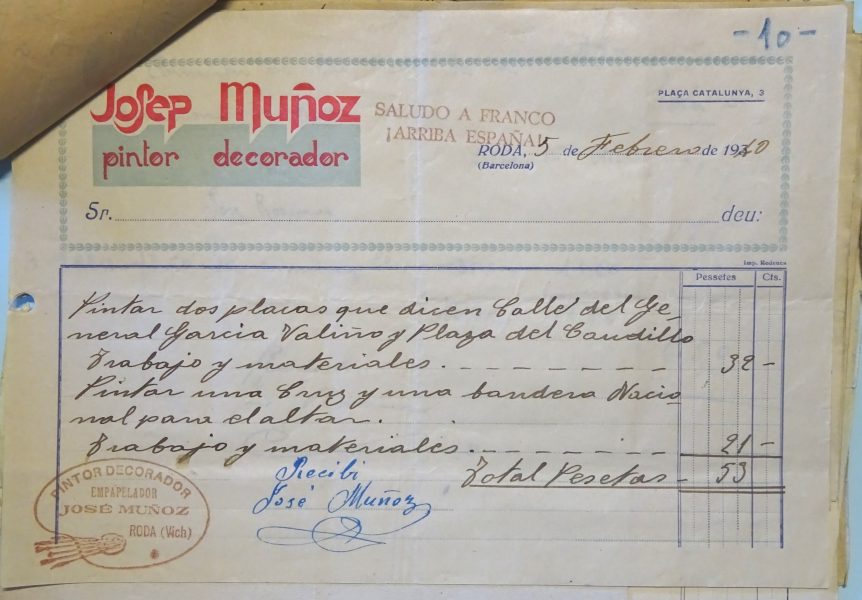 -10-
Josep Muñoz
pintor decorador
SALUDO A FRANCO
¡ARRIBA ESPAÑA!
PLAÇA CATALUNYA, 3
RODA, 5 de Febrero de 1940
(Barcelona)
Sr. deu:
Imp. Rodenca
Pessetes Cts.
Pintar dos placas que dicen Calle del Ge-
neral Garcia Valiño y Plaza del Caudillo
Trabajo y materiales. 32 -
Pintar una Cruz y una bandera Nacio-
nal para el altar.
Trabajo y materiales. 21 -
Total Pesetas - 53
Recibi
José Muñoz
PINTOR DECORADOR
EMPAPELADOR
JOSÉ MUÑOZ
RODA (Vich)